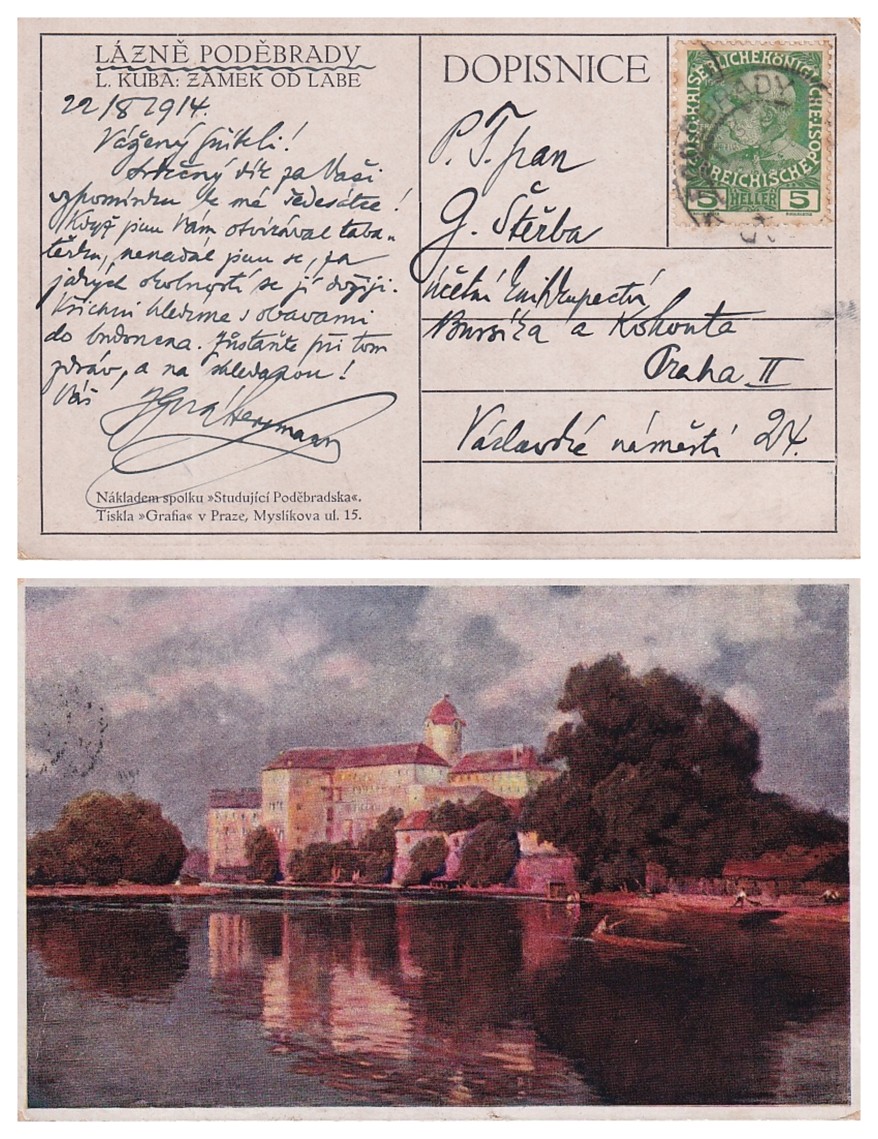 LÁZNĚ PODĚBRADY
L. KUBA: ZÁMEK OD LABE
22/8 1914.
Vážený příteli!
Srdečný dík za Vaši
vzpomínku k mé šedesátce!
Když jsem Vám otvíral taba-
těrku, nenadál jsem se, za
jakých okolností se jí dožiji.
Všichni hledíme s obavami
do budoucna. Zůstaňte při tom
zdráv, a na shledanou!
Váš
Ignát Herrmann
Nákladem spolku »Studující Poděbradska«.
Tiskla »Grafia« v Praze, Myslíkova ul. 15.
DOPISNICE
P. T. pan
G. Štěrba
účetní knihkupectví
Bursíka a Kohouta
Praha II
Václavské náměstí 24.
KAISERLICHE KÖNIGLICHE ÖSTERREICHISCHE POST
5 HELLER 5